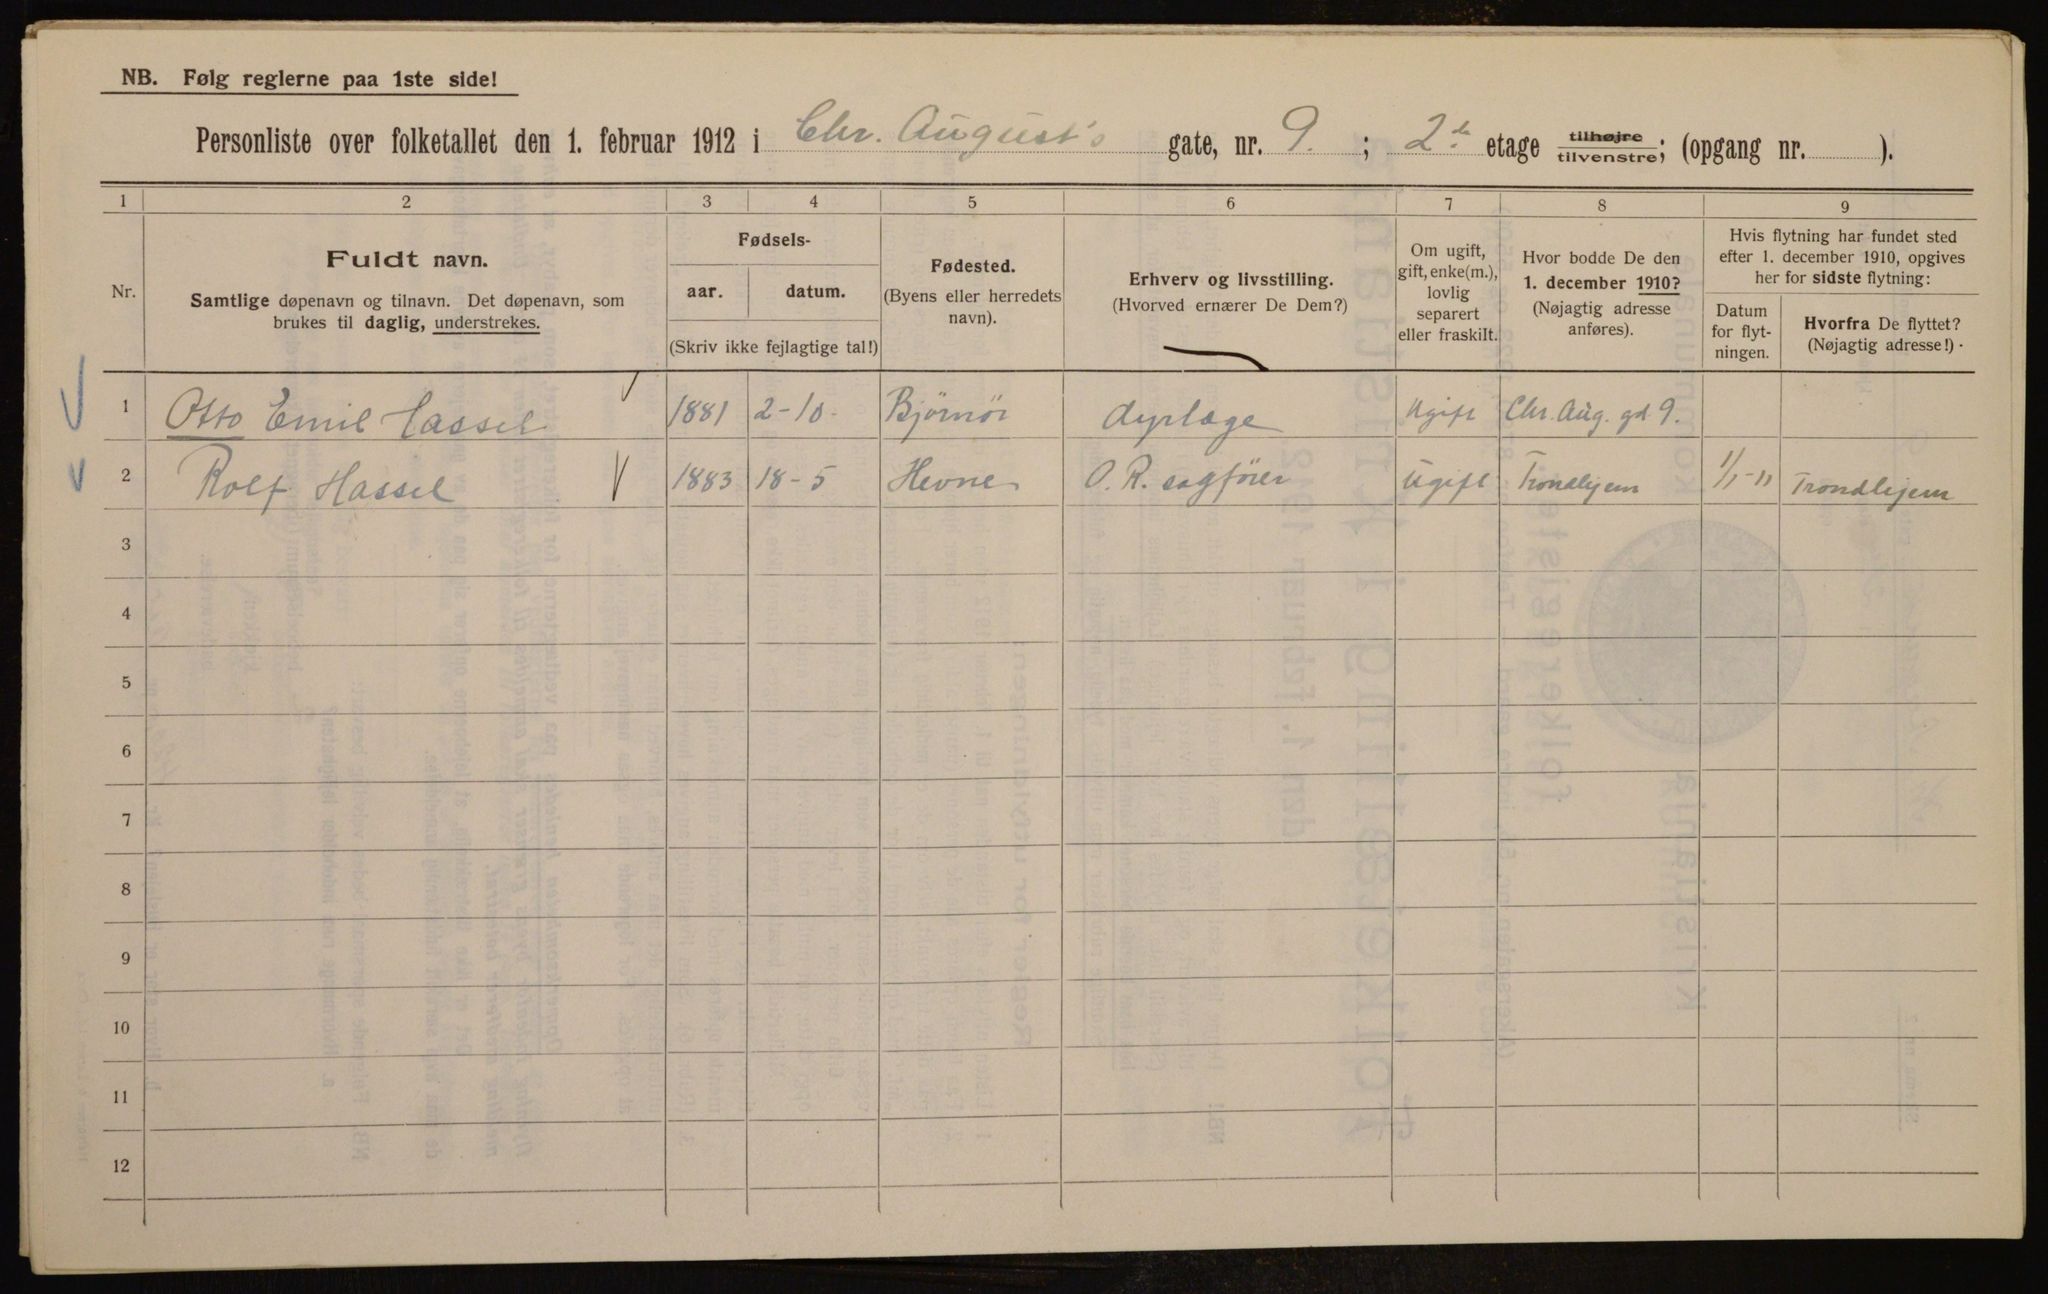 NB. Følg reglerne paa 1ste side!
Personliste over folketallet den 1. februar 1912 i Chr. August's gate, nr. 9. ; 2de etage tilhøjre/tilvenstre; (opgang nr. ).
1 2 3 4 5 6 7 8 9
Nr.
Fuldt navn.
Samtlige døpenavn og tilnavn. Det døpenavn, som
brukes til daglig, understrekes.
Fødsels-
aar. datum.
(Skriv ikke fejlagtige tal!)
Fødested.
(Byens eller herredets
navn).
Erhverv og livsstilling.
(Hvorved ernærer De Dem?)
Om ugift,
gift, enke(m.),
lovlig
separert
eller fraskilt.
Hvor bodde De den
1. december 1910?
(Nøjagtig adresse
anføres).
Hvis flytning har fundet sted
efter 1. december 1910, opgives
her for sidste flytning:
Datum
for flyt-
ningen.
Hvorfra De flyttet?
(Nøjagtig adresse!)
1 Otto Emil Hassel 1881 2-10- Bjørnör dyrlæge Ugift Chr. Aug. gd 9.
2 Rolf Hassel 1883 18-5 Hevne O. R. sagfører Ugift Trondhjem 1/1-11 Trondhjem
3
4
5
6
7
8
9
10
11
12